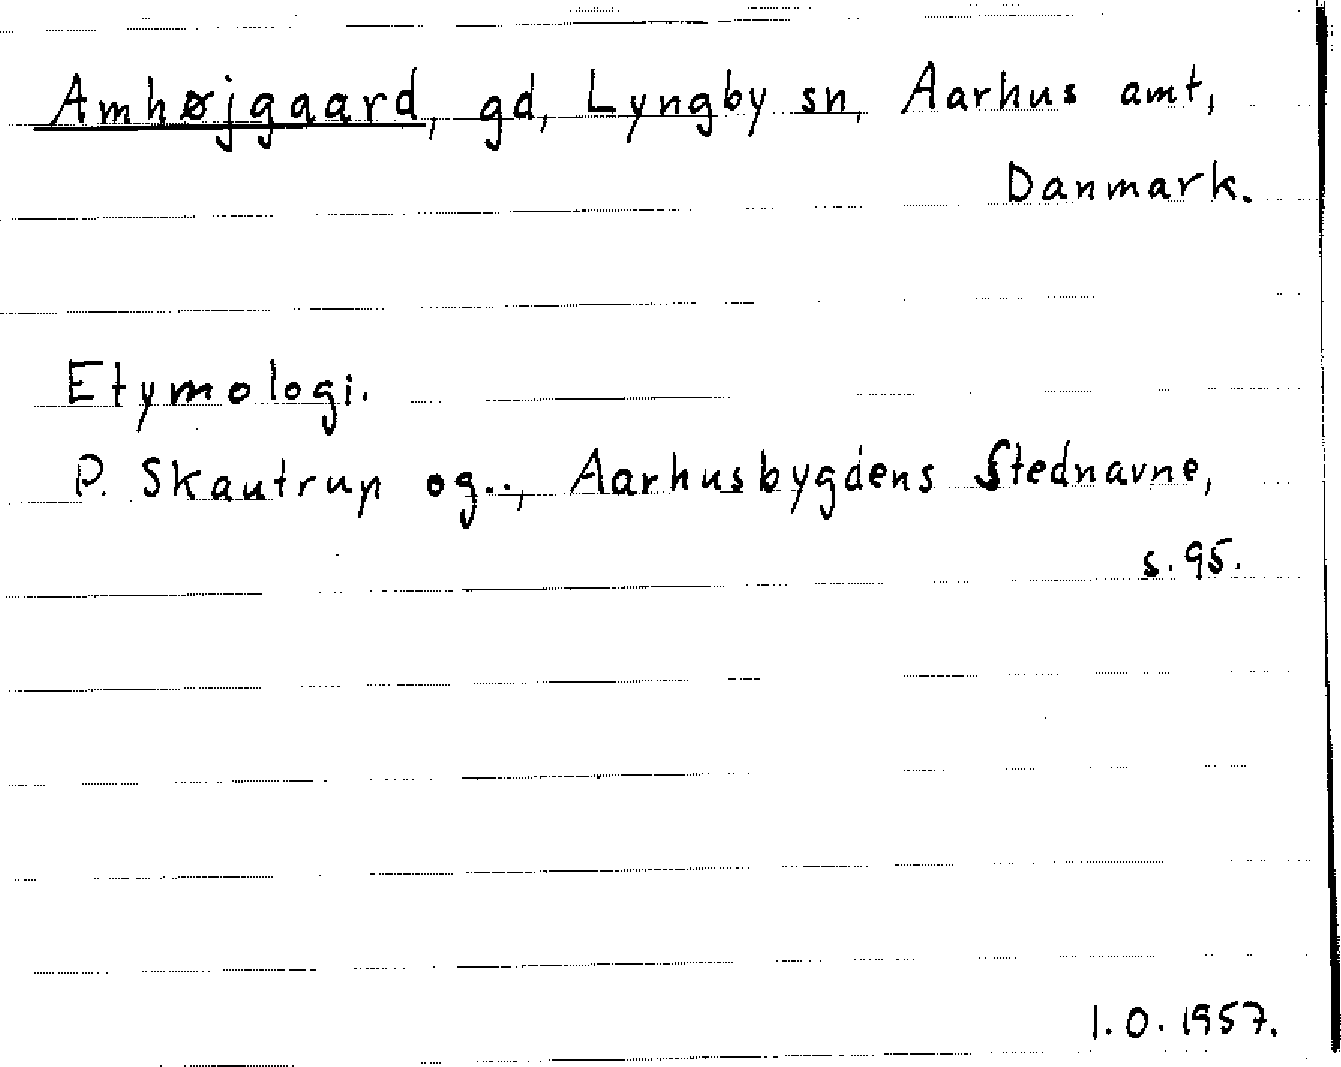 Amhøjgaard, gd, Lyngby sn, Aarhus amt,
Danmark.
Etymologi.
P. Skautrup og.., Aarhusbygdens Stednavne,
s. 95.
I. O. 1957.